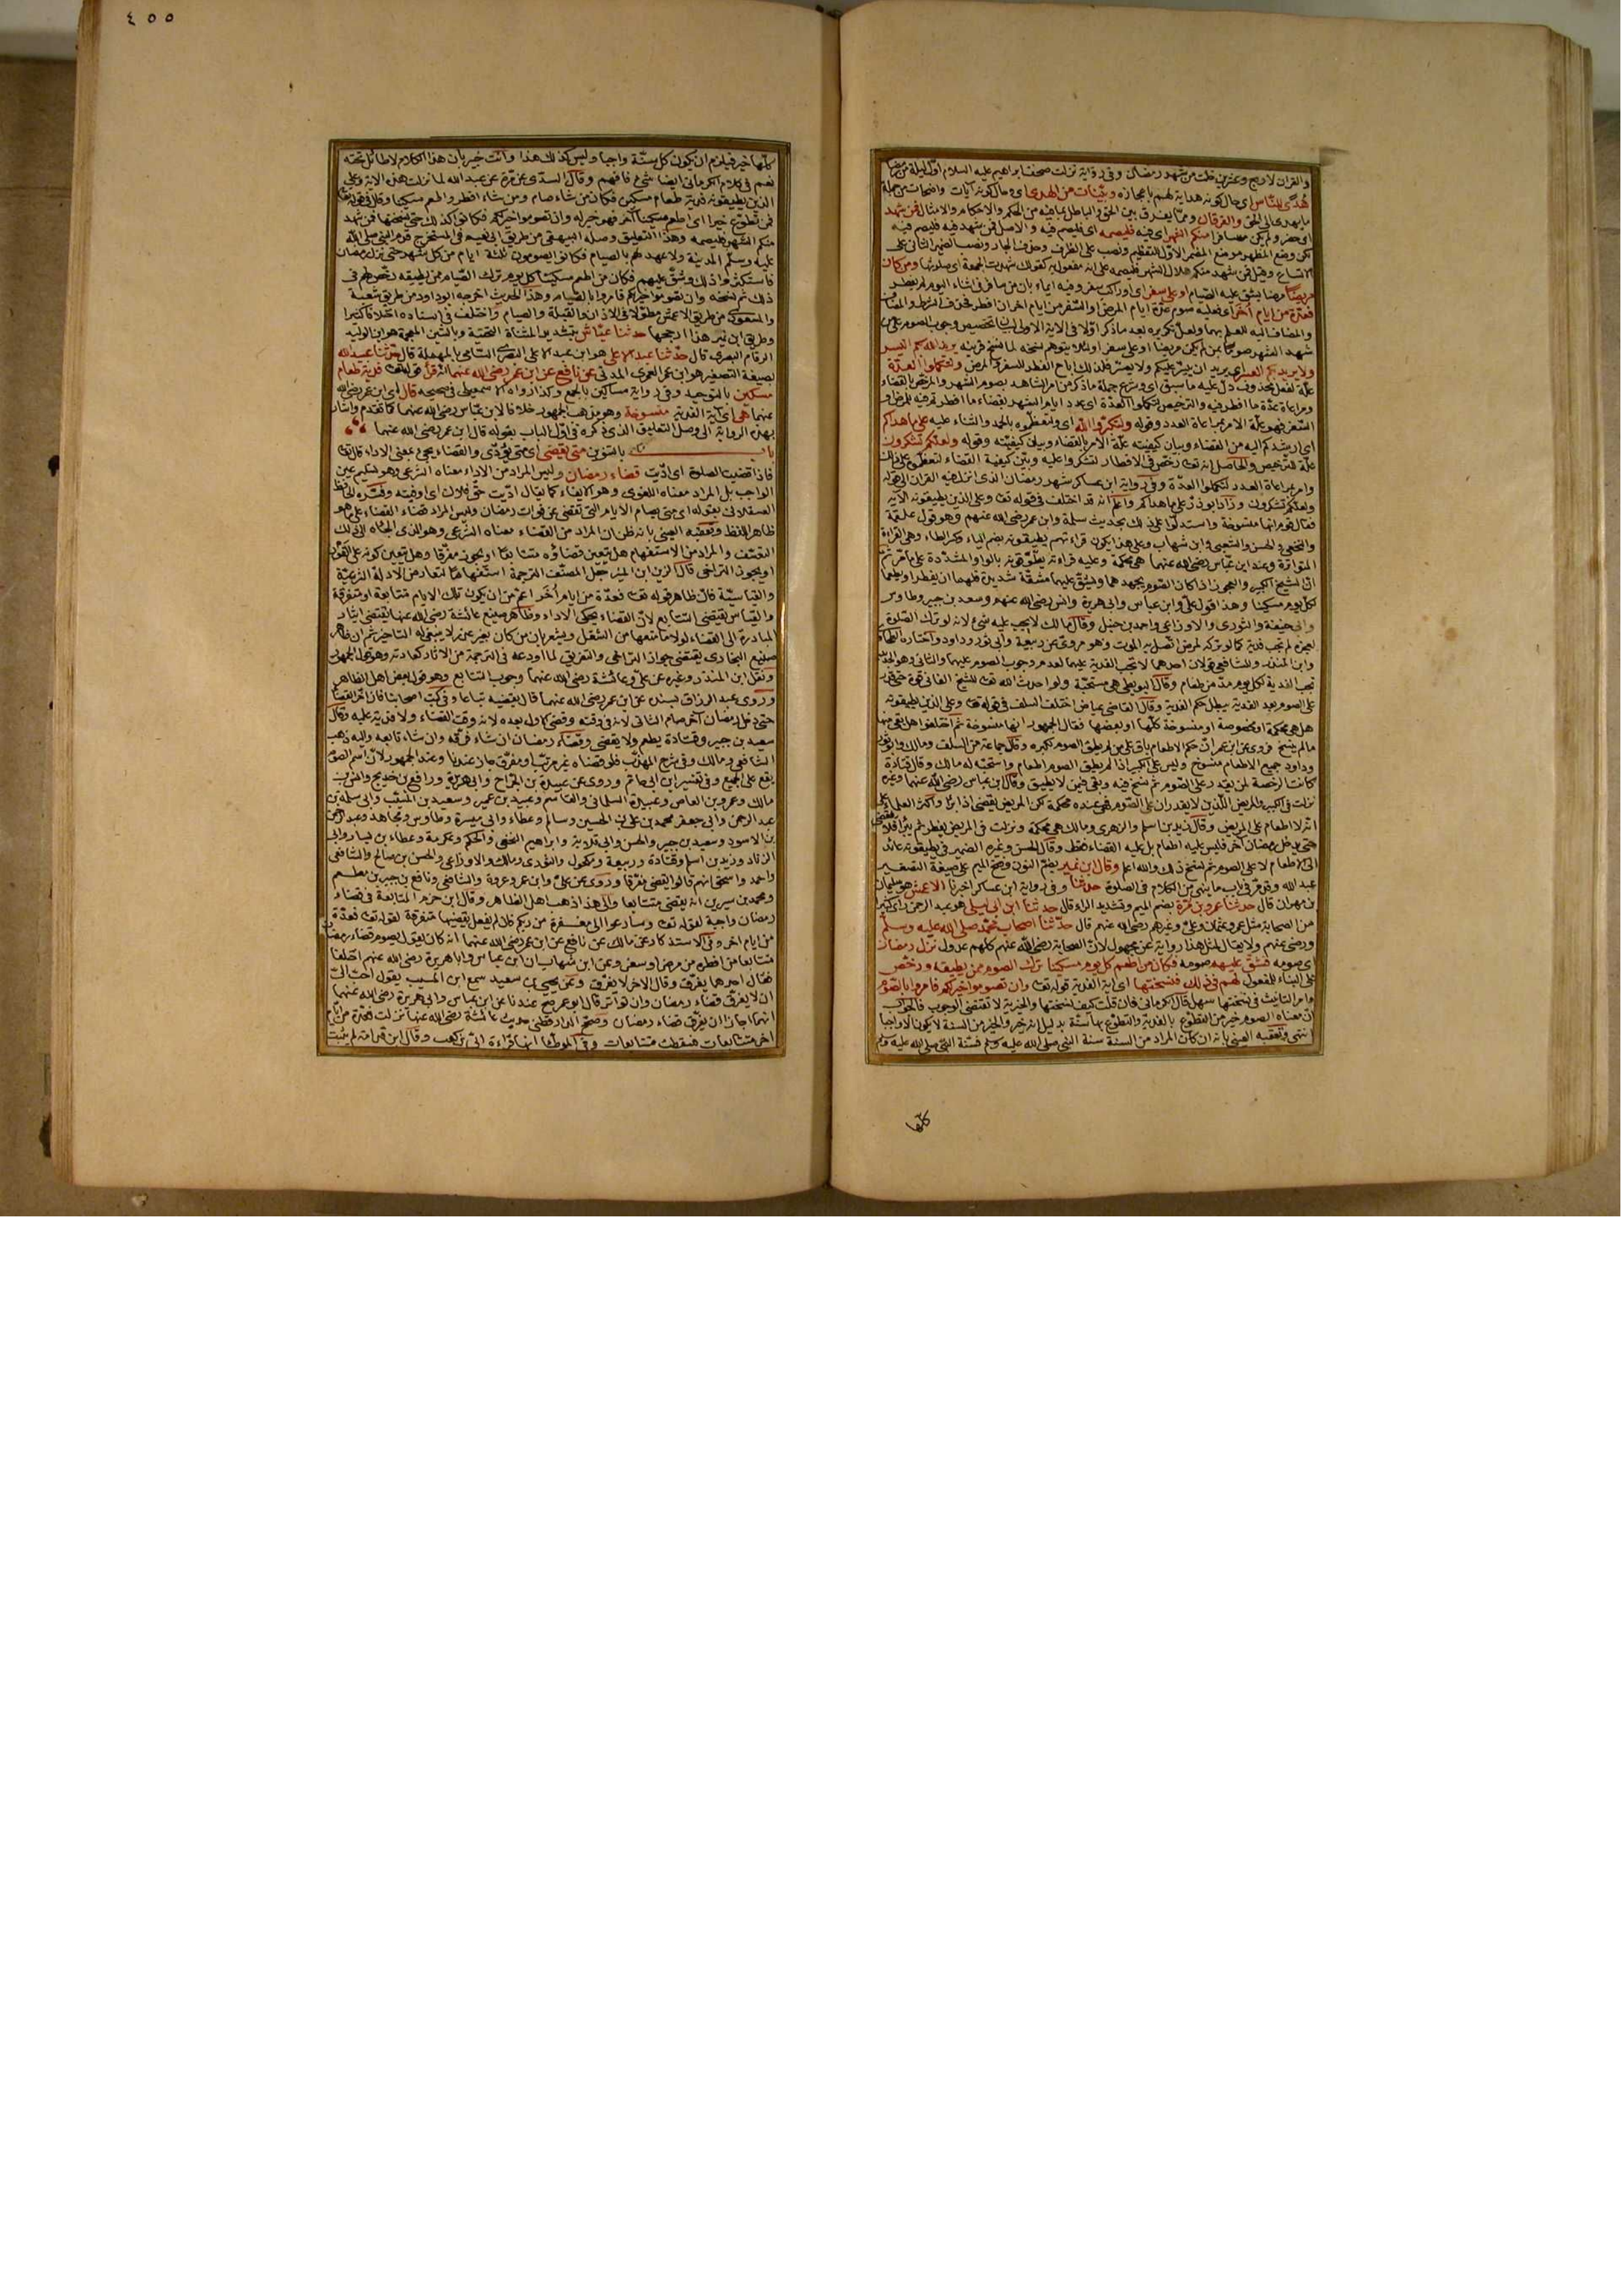 والقرآن لاربع وعشرين خلت من شهر رمضان وفي رواية نزلت صحف ابراهيم عليه السلام اول ليلة من رمضان
هُدًى للنّاس اى حال كونه هداية لهم باعجازه وبيّنات من الهدى اى وحال كونه آيات واضحات من جملة
ما يهدى الى الحق والفرقان ومما يفرق بين الحق والباطل بما فيه من الحكم والاحكام والامثال فمن شهد
اى حضر ولم يكن مسافرا منكم الشهر اى فيه فليصمه اى فليصم فيه والاصل فمن شهد فيه فليصم فيه
لكن وضع المظهر موضع المضمر الاول للتعظيم ونصب على الظرف وحذف الجار ونصب الضمير الثانى على
الاتساع وقيل فمن شهد منكم هلال الشهر فليصمه على انه مفعول به كقولك شهدت الجمعة اى صلوتها ومن كان
مريضا مرضا يشق عليه الصيام او على سفر اى او راكب سفر وفيه ايماء بان من سافر فى اثناء اليوم لم يفطر
فعدّة من ايام أخر اى فعليه صوم عدّة ايام المرض والسفر من ايام اخر ان افطر فحذف الشرط والمضاف
والمضاف اليه للعلم بهما ولعل تكريره بعد ما ذكر اولا فى الآية الاولى لبيان تخصيص وجوب الصوم على من
شهد الشهر صوما بمن لم يكن مريضا او على سفر او لئلا يتوهم نسخه لما نسخ قرينه يريد الله بكم اليسر
ولا يريد بكم العسر اى يريد ان ييسّر عليكم ولا يعسّر فلذلك اباح الفطر للسفر والمرض ولتكملوا العدّة
علّة لفعل محذوف دل عليه ما سبق اى وشرع جملة ما ذكر من امر الشاهد بصوم الشهر والمرخص بالقضاء
ومراعاة عدّة ما افطر فيه والترخيص لتكملوا العدّة اى عدد ايام الشهر بقضاء ما افطرتم فيه للمرض او
السفر فهو علّة الامر بمراعاة العدد وقوله ولتكبّروا اللّه اى ولتعظّموه بالحمد والثناء عليه على ما هداكم
اى ارشدكم اليه من القضاء وبيان كيفيته علّة الامر بالقضاء وبيان كيفيّته وقوله ولعلّكم تشكرون
علّة الترخيص والحاصل انه تعالى رخّص فى الافطار لتشكروا عليه وبيّن كيفية القضاء لتعظّموه على ذلك
وامر بمراعاة العدد لتكملوا العدّة وفى رواية ابن عساكر شهر رمضان الذى انزل فيه القرآن الى قوله
ولعلّكم تشكرون وزاد ابو ذرّ على ما هداكم واعلم انه قد اختلف فى قوله تعالى وعلى الذين يطيقونه الآية
فقال قوم انها منسوخة واستدلّوا على ذلك بحديث سلمة وابن عمر رضى الله عنهم وهو قول علقمة
والنخعى والحسن والشعبى وابن شهاب وعلى هذا يكون قراءتهم يطيقونه بضم الياء وكسر الطاء وهى القراءة
المتواترة وعند ابن عبّاس رضى الله عنهما هى محكمة وعليه قراءته يطوّقونه بالواو المشدّدة على ما مرّ ثمّ
انّ الشيخ الكبير والعجوز اذا كان الصوم يجهدهما ويشقّ عليهما مشقّة شديدة فلهما ان يفطرا ويطعما
لكل يوم مسكينا وهذا قول على وابن عباس وابى هريرة وانس رضى الله عنهم وسعيد بن جبير وطاوس
وابى حنيفة والثورى والاوزاعى واحمد بن حنبل وقال مالك لا يجب عليه شىء لانه لو ترك الصلوة
لعجزه لم تجب فدية كما لو تركه لمرض اتّصل به الموت وهو مروىّ عن ربيعة وابى ثور وداود واختاره الطحاوى
وابن المنذر وللشافعى قولان احدهما لا تجب الفدية عليهما لعدم وجوب الصوم عليهما والثانى وهو الجديد
تجب الفدية لكل يوم مدّ من طعام وقال البويطى هى مستحبّة ولو احدث الله تعالى للشيخ الفانى قوة حتى قدر
على الصوم بعد الفدية يبطل حكم الفدية وقال القاضى عياض اختلف السلف فى قوله تعالى وعلى الذين يطيقونه
هل هى محكمة او مخصوصة او منسوخة كلّها او بعضها فقال الجمهور انها منسوخة ثم اختلفوا هل بقى منها
ما لم ينسخ فروى عن ابن عمر انّ حكم الاطعام باق على من لم يطق الصوم لكبره وقال جماعة من السلف ومالك وابو ثور
وداود جميع الاطعام منسوخ وليس على الكبير اذا لم يطق الصوم اطعام واستحبّه له مالك وقال قتادة
كانت الرخصة لمن يقدر على الصوم ثم نسخ فيه وبقى فيمن لا يطيق وقال ابن عباس رضى الله عنهما وغيره
نزلت فى الكبير والمريض اللّذين لا يقدران على الصّوم فهى عنده محكمة لكن المريض يقضى اذا برئ واكثر العلماء على
انّه لا اطعام على المريض وقال زيد بن اسلم والزهرى ومالك هى محكمة ونزلت فى المريض يفطر ثم يبرأ فلا يقضى
حتى يدخل رمضان آخر فليس عليه اطعام بل عليه القضاء فقط وقال الحسن وغيره الضمير فى يطيقونه عائد
الى الاطعام لا على الصوم ثم نسخ ذلك والله اعلم وقال ابن نمير بضمّ النون وفتح الميم على صيغة التصغير
عبد الله وقد مرّ فى باب ما ينهى من الكلام فى الصلوة حدثنا وفى رواية ابن عساكر اخبرنا الاعمش هو سليمان
بن مهران قال حدثنا عمرو بن مُرّة بضم الميم وتشديد الراء قال حدثنا ابن ابى ليلى هو عبد الرحمن رأى كثيرا
من الصحابة مثل عمر وعثمان وعلى وغيرهم رضى الله عنهم قال حدّثنا اصحاب محمّد صلى الله عليه وسلم
ورضى عنهم ولا يقال لمثل هذا رواية عن مجهول لانّ الصحابة رضى اللّه عنهم كلهم عدول نزل رمضان
اى صومه فشقّ عليهم صومه فكان من اطعم كل يوم مسكينا ترك الصوم ممن يطيقه ورخّص
على البناء للمفعول لهم فى ذلك فنسختها اى آية الفدية قوله تعالى وان تصوموا خير لكم فامروا بالصّوم
وامر التأنيث فى نسختها سهل قال الكرمانى فان قلت كيف نسختها والخيرية لا تقتضى الوجوب فالجواب
ان معناه الصوم خير من التطوّع بالفدية والتطوّع بها سنّة بدليل انه خير والخير من السنة لا يكون الا واجبا
انتهى وتعقبه العينى بانه ان كان المراد من السنة سنة النبى صلى الله عليه وسلم فسنّة النبى صلى الله عليه وسلم
كلّها
٤٥٥
كلّها خير فيلزم ان يكون كل سنّة واجبا وليس كذلك هذا وانت خبير بان هذا الكلام لا طائل تحته
نعم فى كلام الكرمانى ايضا شىء فافهم وقال السدّى عن مرّة عن عبد الله لما نزلت هذه الآية وعلى
الذين يطيقونه فدية طعام مسكين فكان من شاء صام ومن شاء افطر واطعم مسكينا وقال فى قوله تعالى
فمن تطوّع خيرا اى اطعم مسكينا آخر فهو خير له وان تصوموا خير لكم فكانوا كذلك حتى نسختها فمن شهد
منكم الشهر فليصمه وهذا التعليق وصله البيهقى من طريق ابى نعيم فى المستخرج قدم النبى صلى اللّه
عليه وسلم المدينة ولا عهد لهم بالصيام فكانوا يصومون ثلثة ايام من كل شهر حتى نزل رمضان
فاستكثروا ذلك وشقّ عليهم فكان من اطعم مسكينا كل يوم ترك الصيام ممن يطيقه رخّص لهم فى
ذلك ثم نسخه وان تصوموا خير لكم فامروا بالصيام وهذا الحديث اخرجه ابو داود من طريق شعبة
والمسعودى من طريق الاعمش مطوّلا فى الاذان والقبلة والصيام واختلف فى اسناده اختلافا كثيرا
وطريق ابن نمير هذا ارجحها حدثنا عيّاش بتشديد المثناة التحتية وبالشين المعجمة هو ابن الوليد
الرقام البصرى قال حدّثنا عبد الاعلى هو ابن عبد الاعلى البصرى السامى بالمهملة قال حدّثنا عبيد الله
بصيغة التصغير هو ابن عمر العمرى المدنى عن نافع عن ابن عمر رضى الله عنهما انه قرأ قوله تعالى فدية طعام
مسكين بالتوحيد وفى رواية مساكين بالجمع وكذا رواه الاسمعيلى فى صحيحه قال اى ابن عمر رضى الله
عنهما هى اى آية الفدية منسوخة وهو مذهب الجمهور خلافا لابن عبّاس رضى الله عنهما كما تقدم واشار
بهذه الرواية الى وصل التعليق الذى ذكره فى اول الباب بقوله قال ابن عمر رضى الله عنهما
باب بالتنوين متى يقضى اى متى يؤدّى والقضاء يجىء بمعنى الاداء قال تعالى
فاذا قضيت الصلوة اى ادّيت قضاء رمضان وليس المراد من الاداء معناه الشرعى وهو تسليم عين
الواجب بل المراد معناه اللغوى وهو الايفاء كما يقال ادّيت حقّ فلان اى اوفيته وفسّره الحافظ
العسقلانى بقوله اى متى يصام الايام التى تقضى عن فوات رمضان وليس المراد قضاء القضاء على ما هو
ظاهر اللفظ وتعقبه العينى بانه ظن ان المراد من القضاء معناه الشرعى وهو الذى الجأه الى ذلك
التعسّف والمراد من الاستفهام هل يتعين قضاؤه متتابعا او يجوز مفرّقا وهل يتعين كونه على الفور
او يجوز التراخى قال الزين ابن المنير جعل المصنّف الترجمة استفهاما لتعارض الادلة الشرعيّة
والقياسيّة فانّ ظاهر قوله تعالى فعدّة من ايام أخر اعم من ان يكون تلك الايام متتابعة او متفرقة
والقياس يقتضى التتابع لانّ القضاء يحكى الاداء وظاهر صنيع عائشة رضى الله عنها يقتضى ايثار
المبادرة الى القضاء لولا ما منعها من الشغل ويشعر بان من كان بغير عذر لا ينبغى له التأخير ثم ان ظاهر
صنيع البخارى يقتضى جواز التراخى والتفريق لما اودعه فى الترجمة من الآثار كعادته وهو قول الجمهور
ونقل ابن المنذر وغيره عن علىّ وعائشة رضى الله عنهما وجوب التتابع وهو قول بعض اهل الظاهر
وروى عبد الرزاق بسنده عن ابن عمر رضى الله عنهما قال يقضيه تباعا وفى كتب اصحابنا فان اخّر القضاء
حتى دخل رمضان آخر صام الثانى لانه فى وقته وقضى الاول بعده لانه وقت القضاء ولا فدية عليه وقال
سعيد بن جبير وقتادة يطعم ولا يقضى وقضاء رمضان ان شاء فرّقه وان شاء تابعه واليه ذهب
الشافعى ومالك وفى شرح المهذّب فلو قضاه غير مرتّب او مفرّقا جاز عندنا وعند الجمهور لانّ اسم الصوم
يقع على الجميع وفى تفسير ابن ابى حاتم وروى عن عبيدة بن الجراح وابى هريرة ورافع بن خديج وانس بن
مالك وعمرو بن العاص وعبيدة السلمانى والقاسم وعبيد بن عمير وسعيد بن المسيّب وابى سلمة بن
عبد الرحمن وابى جعفر محمد بن على بن الحسين وسالم وعطاء وابى ميسرة وطاوس ومجاهد وعبد الرحمن
بن الاسود وسعيد بن جبير والحسن وابى قلابة وابراهيم النخعى والحكم وعكرمة وعطاء بن يسار وابى
الزناد وزيد بن اسلم وقتادة وربيعة ومكحول والثورى ومالك والاوزاعى والحسن بن صالح والشافعى
واحمد واسحق انهم قالوا يقضى مفرّقا وروى عن علىّ وابن عمر وعروة والشافعى ونافع بن جبير بن مطعم
ومحمد بن سيرين انه يقضى متتابعا والى هذا ذهب اهل الظاهر وقال ابن حزم المتابعة فى قضاء
رمضان واجبة لقوله تعالى وسارعوا الى مغفرة من ربكم فان لم يفعل يقضيها متفرقة لقوله تعالى فعدّة
من ايام اخر وفى الاستذكار عن مالك عن نافع عن ابن عمر رضى الله عنهما انه كان يقول يصوم قضاء رمضان
متتابعا من افطره من مرض او سفر وعن ابن شهاب ان ابن عباس وابا هريرة رضى الله عنهم اختلفا
فقال احدهما يفرّق وقال الآخر لا يفرّق وعن يحيى بن سعيد سمع ابن المسيب يقول احبّ الىّ
ان لا يفرق قضاء رمضان وان تواتر قال ابو عمر صح عندنا عن ابن عباس وابى هريرة رضى الله عنهما
انهما اجازا ان يفرّق قضاء رمضان وصحّح الدارقطنى حديث عائشة رضى الله عنها نزلت فعدّة من ايّام
اخر متتابعات فسقطت متتابعات وفى الموطأ انها قراءة ابىّ بن كعب وقال ابن قدامة لم يثبت